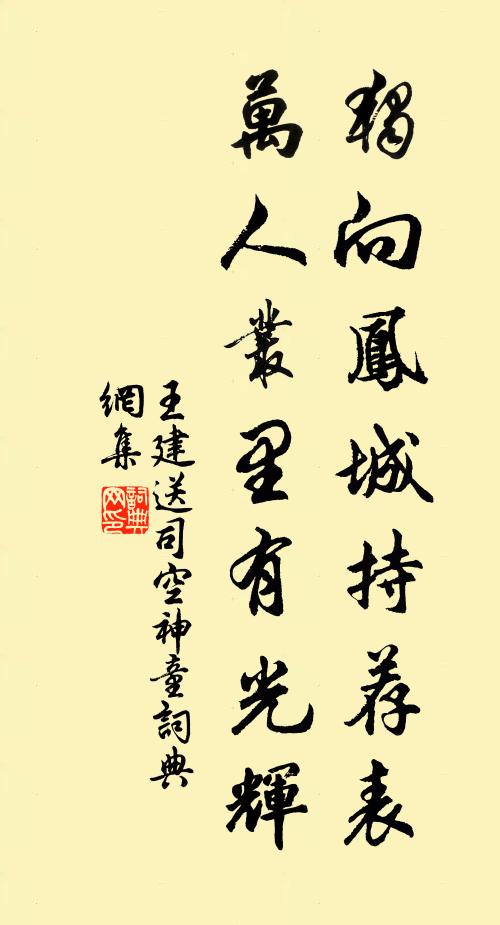 獨向鳳城持荐表
萬人叢里有光輝
王建送司空神童詞典
網集
詞典
网印